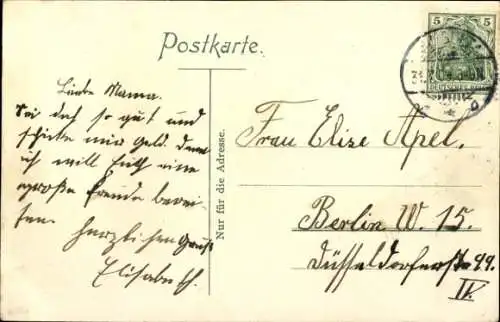 Postkarte.
5 5
DEUTSCHES REICH
Liebe Mama.
Sei doch so gut und
schicke mir Geld. denn
ich will Euch eine
große Freude berei-
ten.
Herzlichen Gruß
Elisabeth.
Nur für die Adresse.
Frau Elise Apel.
Berlin W. 15.
Düsseldorferstr. 44.
IV.